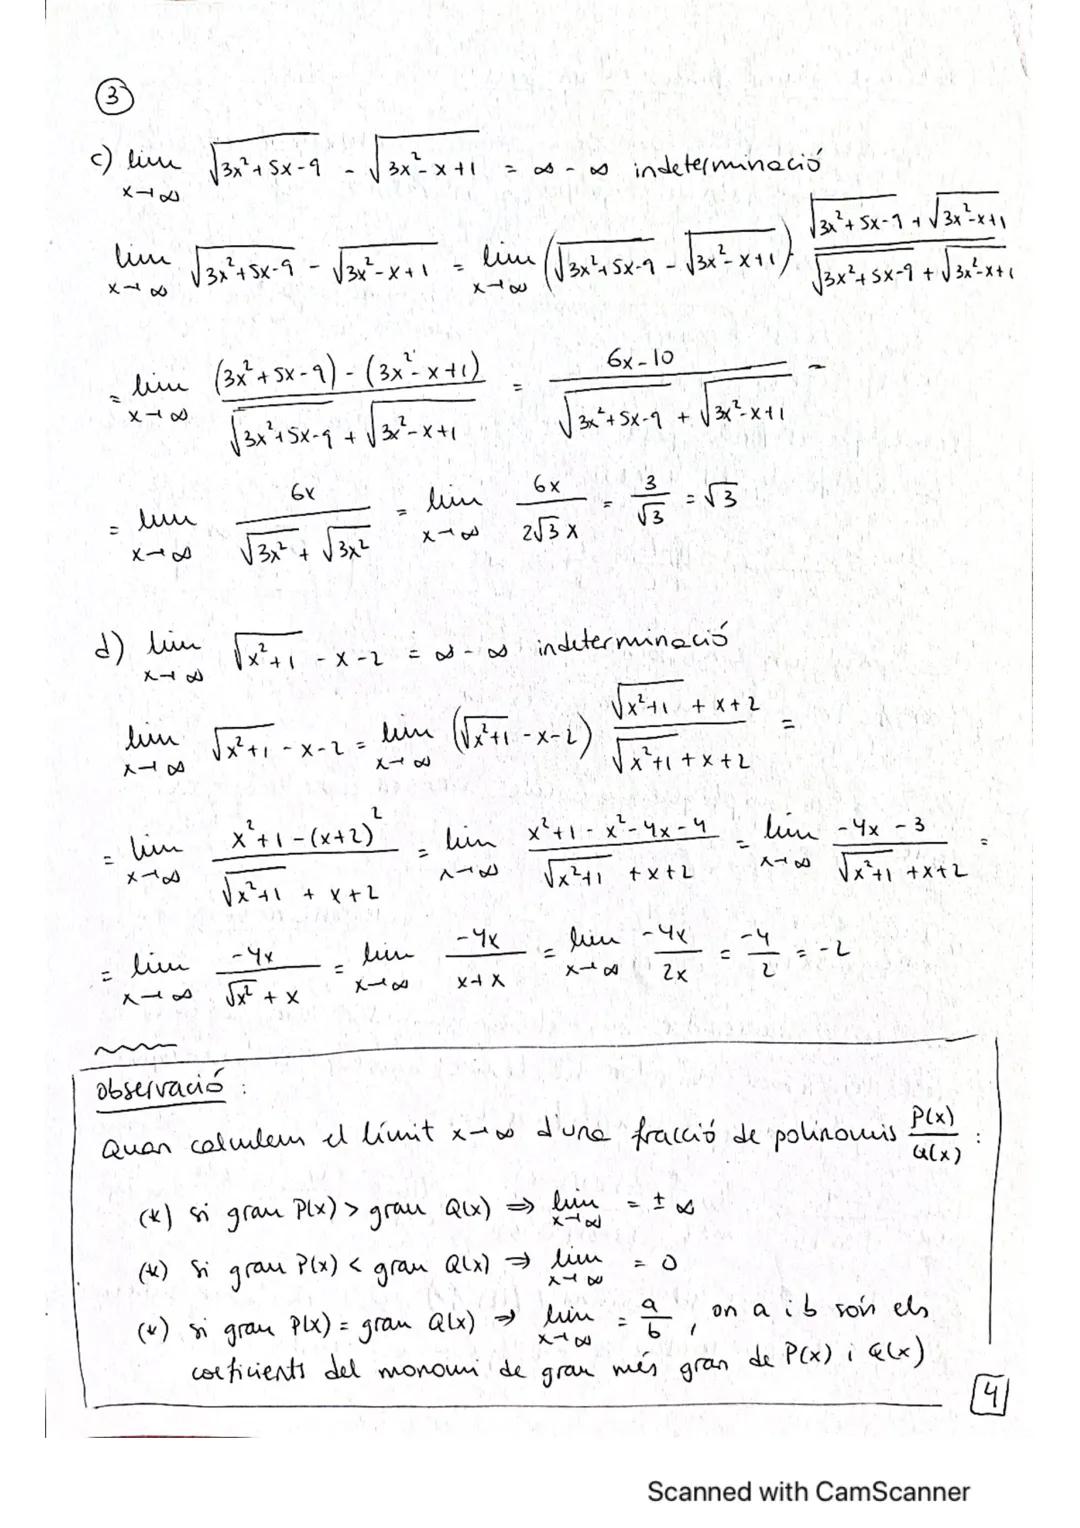 ③
c) lim x→∞ √(3x²+5x-9) - √(3x²-x+1) = ∞ - ∞ indeterminació
lim x→∞ √(3x²+5x-9) - √(3x²-x+1) = lim x→∞ (√(3x²+5x-9) - √(3x²-x+1)) · (√(3x²+5x-9) + √(3x²-x+1)) / (√(3x²+5x-9) + √(3x²-x+1))
= lim x→∞ ((3x²+5x-9) - (3x²-x+1)) / (√(3x²+5x-9) + √(3x²-x+1)) = (6x-10) / (√(3x²+5x-9) + √(3x²-x+1)) =
= lim x→∞ 6x / (√(3x²) + √(3x²)) = lim x→∞ 6x / (2√3 x) = 3/√3 = √3
d) lim x→∞ √(x²+1) - x - 2 = ∞ - ∞ indeterminació
lim x→∞ √(x²+1) - x - 2 = lim x→∞ (√(x²+1) - x - 2) (√(x²+1) + x + 2) / (√(x²+1) + x + 2) =
= lim x→∞ (x²+1-(x+2)²) / (√(x²+1) + x + 2) = lim x→∞ (x²+1-x²-4x-4) / (√(x²+1) + x + 2) = lim x→∞ (-4x-3) / (√(x²+1) + x + 2) =
= lim x→∞ -4x / (√(x²) + x) = lim x→∞ -4x / (x+x) = lim x→∞ -4x / 2x = -4/2 = -2
Observació :
Quan calculem el límit x→∞ d'una fracció de polinomis P(x)/Q(x) :
(*) si grau P(x) > grau Q(x) ⇒ lim x→∞ = ± ∞
(*) si grau P(x) < grau Q(x) ⇒ lim x→∞ = 0
(*) si grau P(x) = grau Q(x) ⇒ lim x→∞ = a/b , on a i b són els
coeficients del monomi de grau més gran de P(x) i Q(x)
4
Scanned with CamScanner